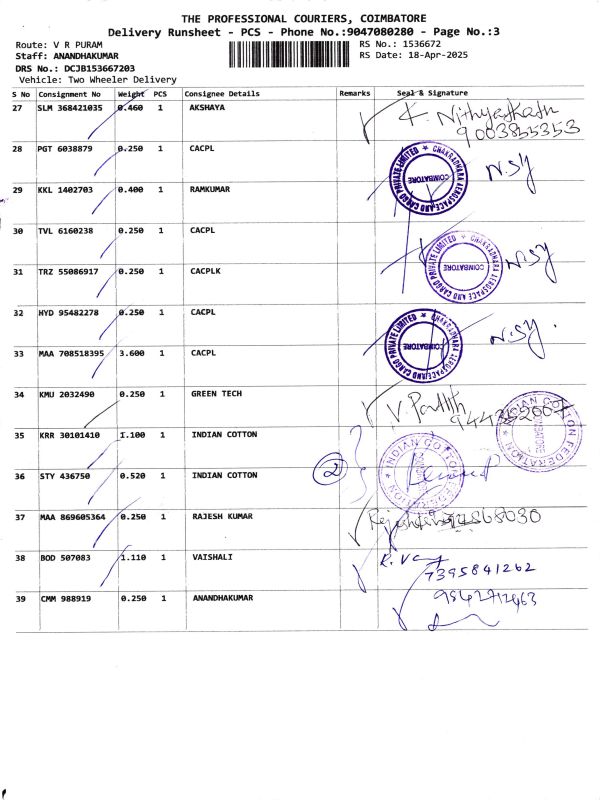 THE PROFESSIONAL COURIERS, COIMBATORE
Delivery Runsheet - PCS - Phone No.:9047080280 - Page No.:3
Route: V R PURAM RS No.: 1536672
Staff: ANANDHAKUMAR RS Date: 18-Apr-2025
DRS No.: DCJB153667203
Vehicle: Two Wheeler Delivery
S No Consignment No Weight PCS Consignee Details Remarks Seal & Signature
27 SLM 368421035 0.460 1 AKSHAYA
9003855353
28 PGT 6038879 0.250 1 CACPL
CHAKRADHARA AEROSPACE AND CARGO PRIVATE LIMITED
COIMBATORE
N.SY
29 KKL 1402703 0.400 1 RAMKUMAR
30 TVL 6160238 0.250 1 CACPL
CHAKRADHARA AEROSPACE AND CARGO PRIVATE LIMITED
COIMBATORE
N.SY
31 TRZ 55086917 0.250 1 CACPLK
32 HYD 95482278 0.250 1 CACPL
CHAKRADHARA AEROSPACE AND CARGO PRIVATE LIMITED
COIMBATORE
N.SY.
33 MAA 708518395 3.600 1 CACPL
34 KMU 2032490 0.250 1 GREEN TECH
INDIAN COTTON FEDERATION
COIMBATORE
35 KRR 30101410 1.100 1 INDIAN COTTON
2
INDIAN COTTON FEDERATION
36 STY 436750 0.520 1 INDIAN COTTON
37 MAA 869605364 0.250 1 RAJESH KUMAR
38 BOD 507083 1.110 1 VAISHALI
7395841262
39 CMM 988919 0.250 1 ANANDHAKUMAR
9542712463